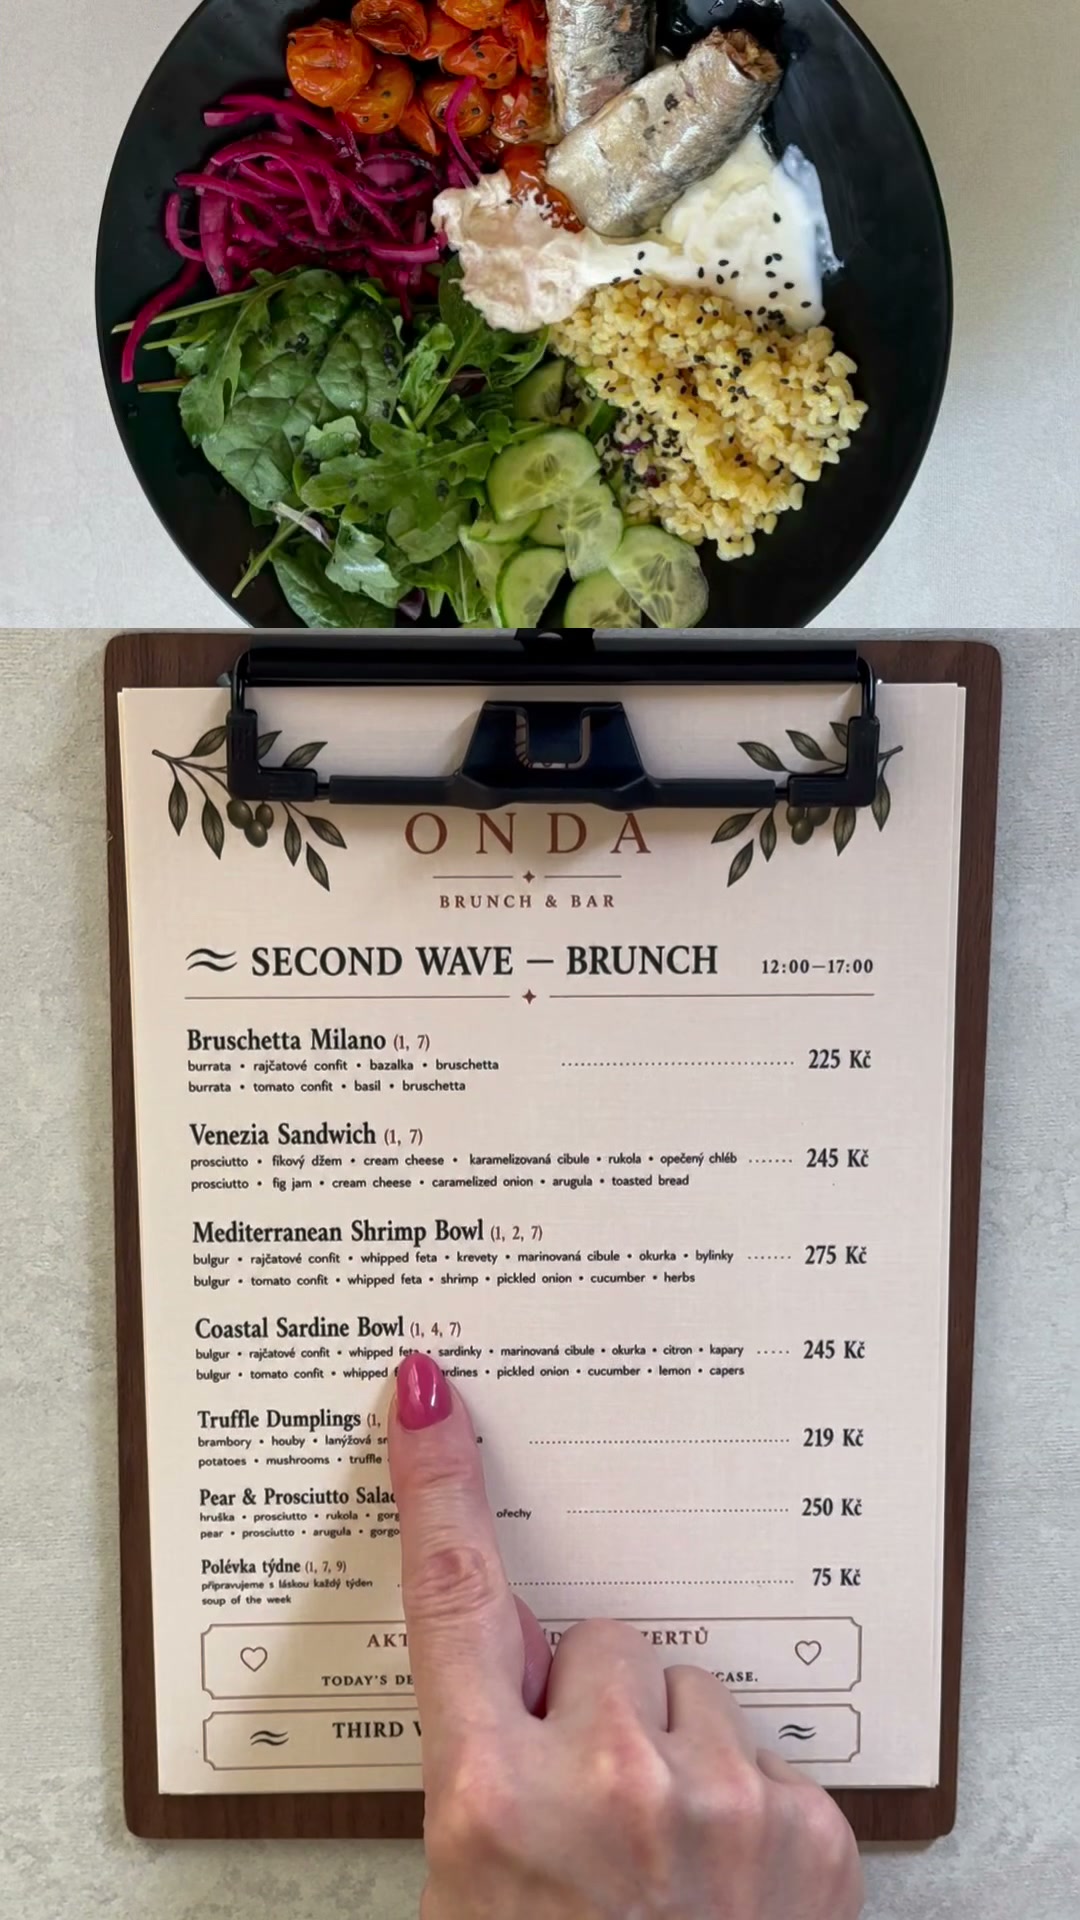 ONDA
BRUNCH & BAR
SECOND WAVE — BRUNCH 12:00—17:00
Bruschetta Milano (1, 7)
burrata • rajčatové confit • bazalka • bruschetta 225 Kč
burrata • tomato confit • basil • bruschetta
Venezia Sandwich (1, 7)
prosciutto • fíkový džem • cream cheese • karamelizovaná cibule • rukola • opečený chléb 245 Kč
prosciutto • fig jam • cream cheese • caramelized onion • arugula • toasted bread
Mediterranean Shrimp Bowl (1, 2, 7)
bulgur • rajčatové confit • whipped feta • krevety • marinovaná cibule • okurka • bylinky 275 Kč
bulgur • tomato confit • whipped feta • shrimp • pickled onion • cucumber • herbs
Coastal Sardine Bowl (1, 4, 7)
bulgur • rajčatové confit • whipped feta • sardinky • marinovaná cibule • okurka • citron • kapary 245 Kč
bulgur • tomato confit • whipped • pickled onion • cucumber • lemon • capers
Truffle Dumplings (1,
brambory • houby • lanýžová 219 Kč
potatoes • mushrooms • truffle
Pear & Prosciutto
hruška • prosciutto • rukola • ořechy 250 Kč
pear • prosciutto • arugula •
Polévka týdne (1, 7, 9)
připravujeme s láskou každý týden 75 Kč
soup of the week
TODAY'S
THIRD